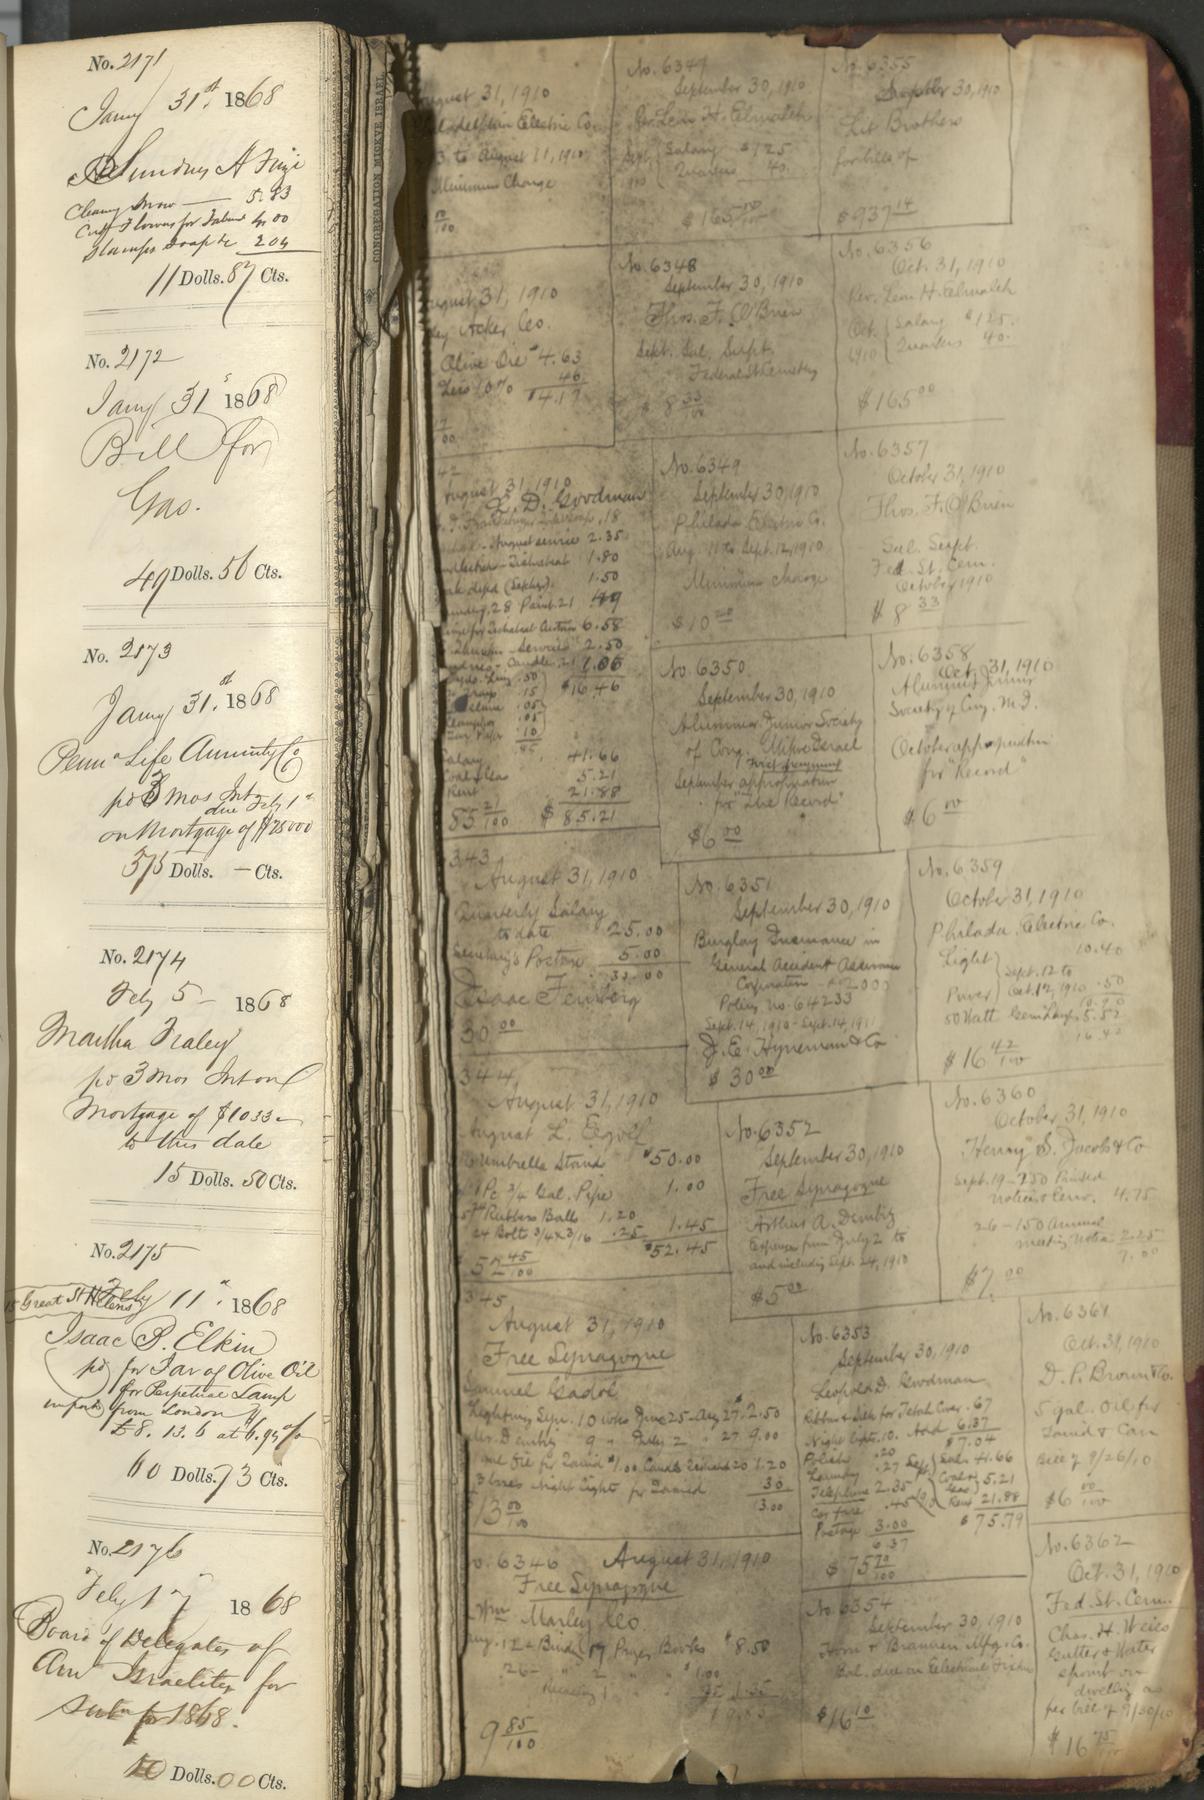 No. 2171
Jany 31st 1868
Sundries A
Cleang Snow — 5.83
Flowers for 4.00
Stamps Soap &c 2.04
11 Dolls. 87 Cts.
No. 2172
Jany 31s 1868
Bill for
Gas.
49 Dolls. 50 Cts.
No. 2173
Jany 31st 1868
Penna Life Annuity Co
pd 3 Mos Int
due Feby 1st
on Mortgage of $25000
375 Dolls. — Cts.
No. 2174
Feby 5 — 1868
Martha Fraley
pd 3 Mos Int on
Mortgage of $1033
to this date
15 Dolls. 50 Cts.
No. 2175
15 Great St Helens
Feby 11th 1868
Isaac B. Elkin
pd for Jar of Olive Oil
for Perpetual Lamp
imported from London
£8. 13. 6 at 6.95
60 Dolls. 73 Cts.
No. 2176
Feby 17 1868
Board of Delegates of
Am Israelites for
1868.
10 Dolls. 00 Cts.
CONGREGATION MICKVE ISRAEL
August 31, 1910
Philadelphia Electric Co.
to August 11, 1910
Minimum Charge
August 31, 1910
Acker Co.
Olive Oil $4.63
Less 10% 46
$4.17
42
August 31, 1910
L. D. Goodman
.18
August service 2.35
1.80
1.50
.49
6.58
Services 2.50
Candles 1.06
.50
.15 $16.46
.05
.05
.10
.85
Salary 41.66
Coal & Gas 5.21
Rent 21.88
85 21/100 $ 85.21
343
August 31, 1910
Quarterly Salary
to date 25.00
Secretary's Postage 5.00
30.00
Isaac Feinberg
30 00
344
August 31, 1910
August L
Umbrella Stand $50.00
1 Pc 3/4 Gal. Pipe 1.00
Rubber Balls 1.20
24 Bolts 3/4 x 3/16 .25 1.45
$52.45
52 45/100
345
August 31, 1910
Free Synagogue
Samuel Gadol
Lighting Sept. 10 wks June 25 - Aug 27. 2.50
Mr. Dembitz 9 " July 2 " 27 9.00
1.20
3 boxes Night Lights for Tamid .30
13.00
13 00/100
No. 6346 August 31, 1910
Free Synagogue
Wm Marley Co
Aug. 12 - Bindg 17 Prayer Books $8.50
26 - " 2 " " $1.00
Rebacking 1 " .35 1.35
9 85/100
No. 6347
September 30, 1910
Rev. Leon H. Elmaleh
Sept. Salary $125
1910 Quarters 40.
$165 00/100
No. 6348
September 30, 1910
Thos. F. O'Brien
Sept. Sal. Supt.
Federal St Cemetery
$ 8 33/100
No. 6349
September 30, 1910
Philada. Electric Co.
Aug. 11 to Sept. 12, 1910
Minimum charge
$10 00
No. 6350
September 30, 1910
Alumni Junior Society
of Cong. Mikve Israel
September appropriation
for "The Record"
$6 00
No. 6351
September 30, 1910
Burglary Insurance in
General Accident Assurance
Corporation $2000
Policy No. 64233
Sept. 14, 1910 - Sept. 14, 1911
J. E. Hyneman & Co
$ 30 00
No. 6352
September 30, 1910
Free Synagogue
Arthur A. Dembitz
Expenses from July 2 to
and including Sept. 24, 1910
$5 00
No. 6353
September 30, 1910
Leopold D. Goodman
Ribbon & Silk for Tebah Cover .67
Night Lights .10. Add 6.37
$7.04
Polish .20
Laundry .27 Sept. Sal. 41.66
Telephone 2.35 Coal & Gas 5.21
Car fare .45 Rent 21.88
Postage 3.00 $75.79
6.37
$75 79/100
No. 6354
September 30, 1910
Horn & Brannen Mfg. Co.
Bal. due on Electrical Fixtures
$16 10
No. 6355
September 30, 1910
Lit Brothers
for bills of
$937 14
No. 6356
Oct. 31, 1910
Rev. Leon H. Elmaleh
Oct. Salary $125.
1910 Quarters 40.
$165 00
No. 6357
October 31, 1910
Thos. F. O'Brien
Sal. Supt.
Fed. St. Cem.
October 1910
$ 8 33
No. 6358
Oct. 31, 1910
Alumni Junior
Society of Cong. M.I.
October appropriation
for "Record"
$6 00
No. 6359
October 31, 1910
Philada. Electric Co.
Light 10.40
Sept. 12 to
Power Oct. 12, 1910 .50
10.90
50 Watt Gem Lamps 5.52
16.42
$16 42/100
No. 6360
October 31, 1910
Henry S. Jacobs & Co
Sept. 19 - 250 Printed
Notices 4.75
26 - 150 Annual
meeting Notice 2.25
7.00
$7. 00
No. 6361
Oct. 31, 1910
D. P. Brown & Co.
5 gal. Oil for
Tamid & Can
Bill of 9/26/10
$6 00/100
No. 6362
Oct. 31, 1910
Fed. St. Cem.
Chas. H. Weiss
Gutter & Water
spout on
dwelling as
per bill of 9/30/10
$16 75/100